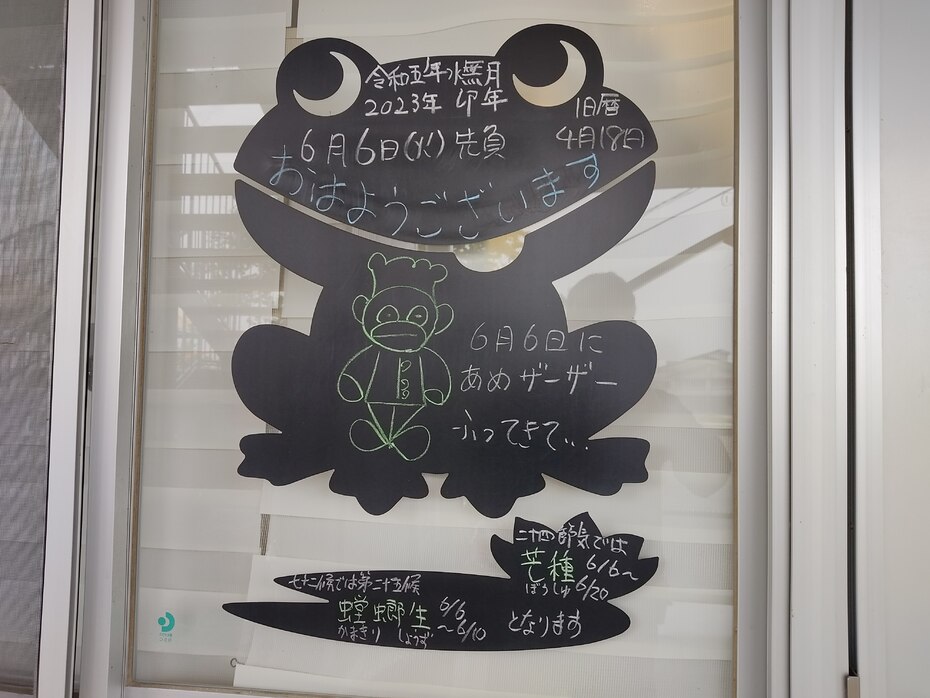 令和五年 水無月
2023年 卯年
旧暦
4月18日
6月6日(火) 先負
おはようございます
6月6日に
あめザーザー
ふってきて...
二十四節気では
芒種 6/6～
ぼうしゅ 6/20
七十二候では第二十五候
螳螂生 6/6
～6/10
かまきり しょうず
となります